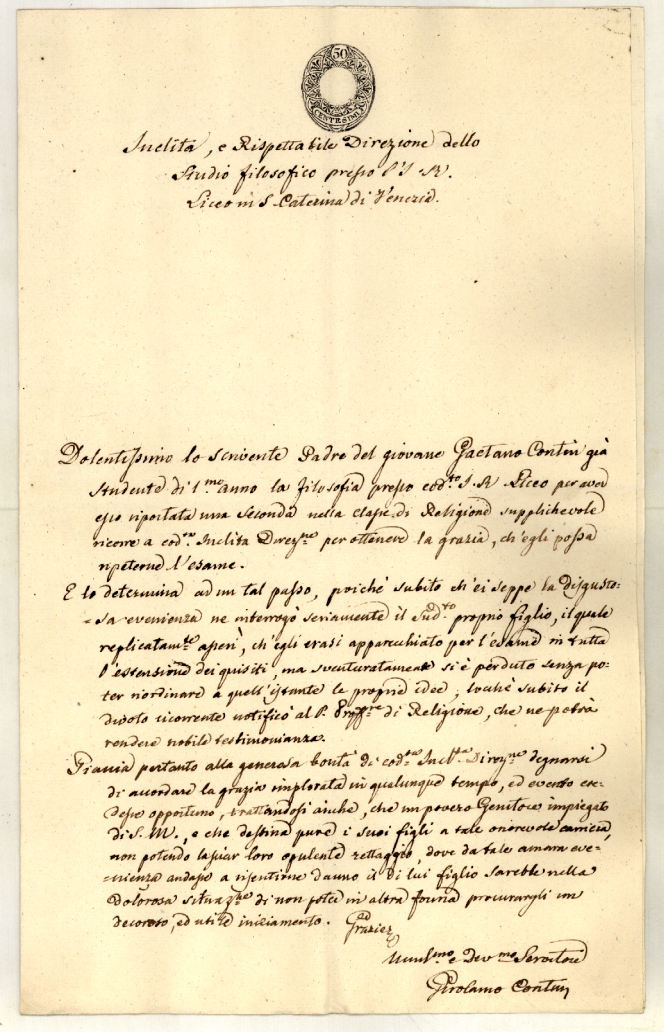 50
CENTESIMI
Inclita, e Rispettabile Direzione dello
Studio filosofico presso l'I. R.
Liceo in S. Caterina di Venezia.
Dolentissimo lo scrivente Padre del giovane Gaetano Contin già
studente di 1.mo anno la filosofia presso cod.to I. R. Liceo per aver
esso riportata una seconda nella classe di Religione supplichevole
ricorre a cod.ta Inclita Direz.ne per ottenere la grazia, ch'egli possa
ripeterne l'esame.
E lo determina ad un tal passo, poichè subito ch'ei seppe la disgusto-
=sa evenienza ne interrogò seriamente il sud.to proprio figlio, il quale
replicatam.te asserì, ch'egli erasi apparecchiato per l'esame in tutta
l'estensione dei quisiti, ma sventuratamente si è perduto senza po-
ter riordinare a quell'istante le proprie idee; locchè subito il
divoto ricorrente notificò al P. Proff.re di Religione, che ne potrà
rendere nobile testimonianza.
Piaccia pertanto alla generosa bontà di cod.ta Incl.ta Direz.ne degnarsi
di accordare la grazia implorata in qualunque tempo, ed evento cre-
desse opportuno, trattandosi anche, che un povero Genitore impiegato
di S. M., e che destina pure i suoi figli a tale onorevole carriera,
non potendo lasciar loro opulente rettaggio, dove da tale amara eve-
=nienza andasse a risentirne danno il di lui figlio sarebbe nella
dolorosa situaz.ne di non poter in altra forma procurargli un
decoroso, ed utile iniziamento.
Grazie
Umil.mo e Dev.mo Servitore
Girolamo Contin